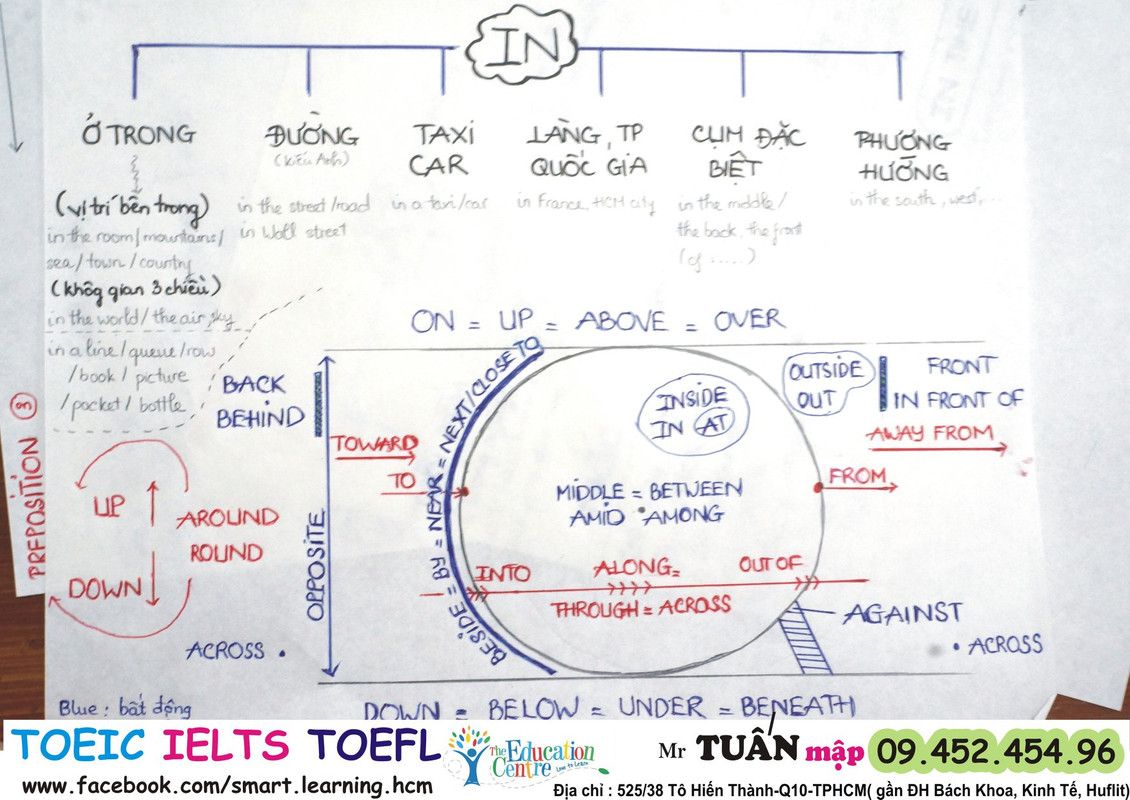 IN
Ở TRONG
(vị trí bên trong)
in the room/mountains/
sea/town/country
(không gian 3 chiều)
in the world/the air, sky
in a line/queue/row
/book/picture
/pocket/bottle
ĐƯỜNG
(kiểu Anh)
in the street/road
in Wall street
TAXI
CAR
in a taxi/car
LÀNG, TP
QUỐC GIA
in France, HCM city
CỤM ĐẶC
BIỆT
in the middle/
the back, the front
(of .....)
PHƯƠNG
HƯỚNG
in the south, west, ...
ON = UP = ABOVE = OVER
BACK
BEHIND
OPPOSITE
TOWARD
TO
BESIDE = BY = NEAR = NEXT/CLOSE TO
INSIDE
IN AT
OUTSIDE
OUT
FRONT
IN FRONT OF
AWAY FROM
FROM
MIDDLE = BETWEEN
AMID AMONG
INTO
ALONG =
OUT OF
THROUGH = ACROSS
AGAINST
ACROSS
PREPOSITION
UP
DOWN
AROUND
ROUND
ACROSS
Blue: bất động
DOWN = BELOW = UNDER = BENEATH
TOEIC IELTS TOEFL
www.facebook.com/smart.learning.hcm
The Education
Centre Love to Learn
Mr TUẤN mập 09.452.454.96
Địa chỉ : 525/38 Tô Hiến Thành-Q10-TPHCM( gần ĐH Bách Khoa, Kinh Tế, Huflit)